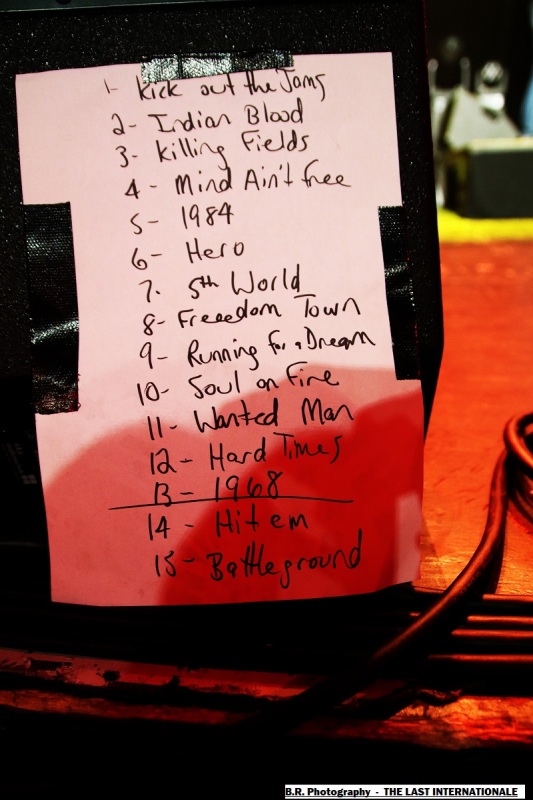 1- Kick out the Jams
2- Indian Blood
3- Killing Fields
4- Mind Ain't free
5- 1984
6- Hero
7. 5th World
8- Freeedom Town
9- Running for a Dream
10- Soul on Fire
11- Wanted Man
12- Hard Times
13- 1968
14- Hit em
15- Battleground
B.R. Photography - THE LAST INTERNATIONALE